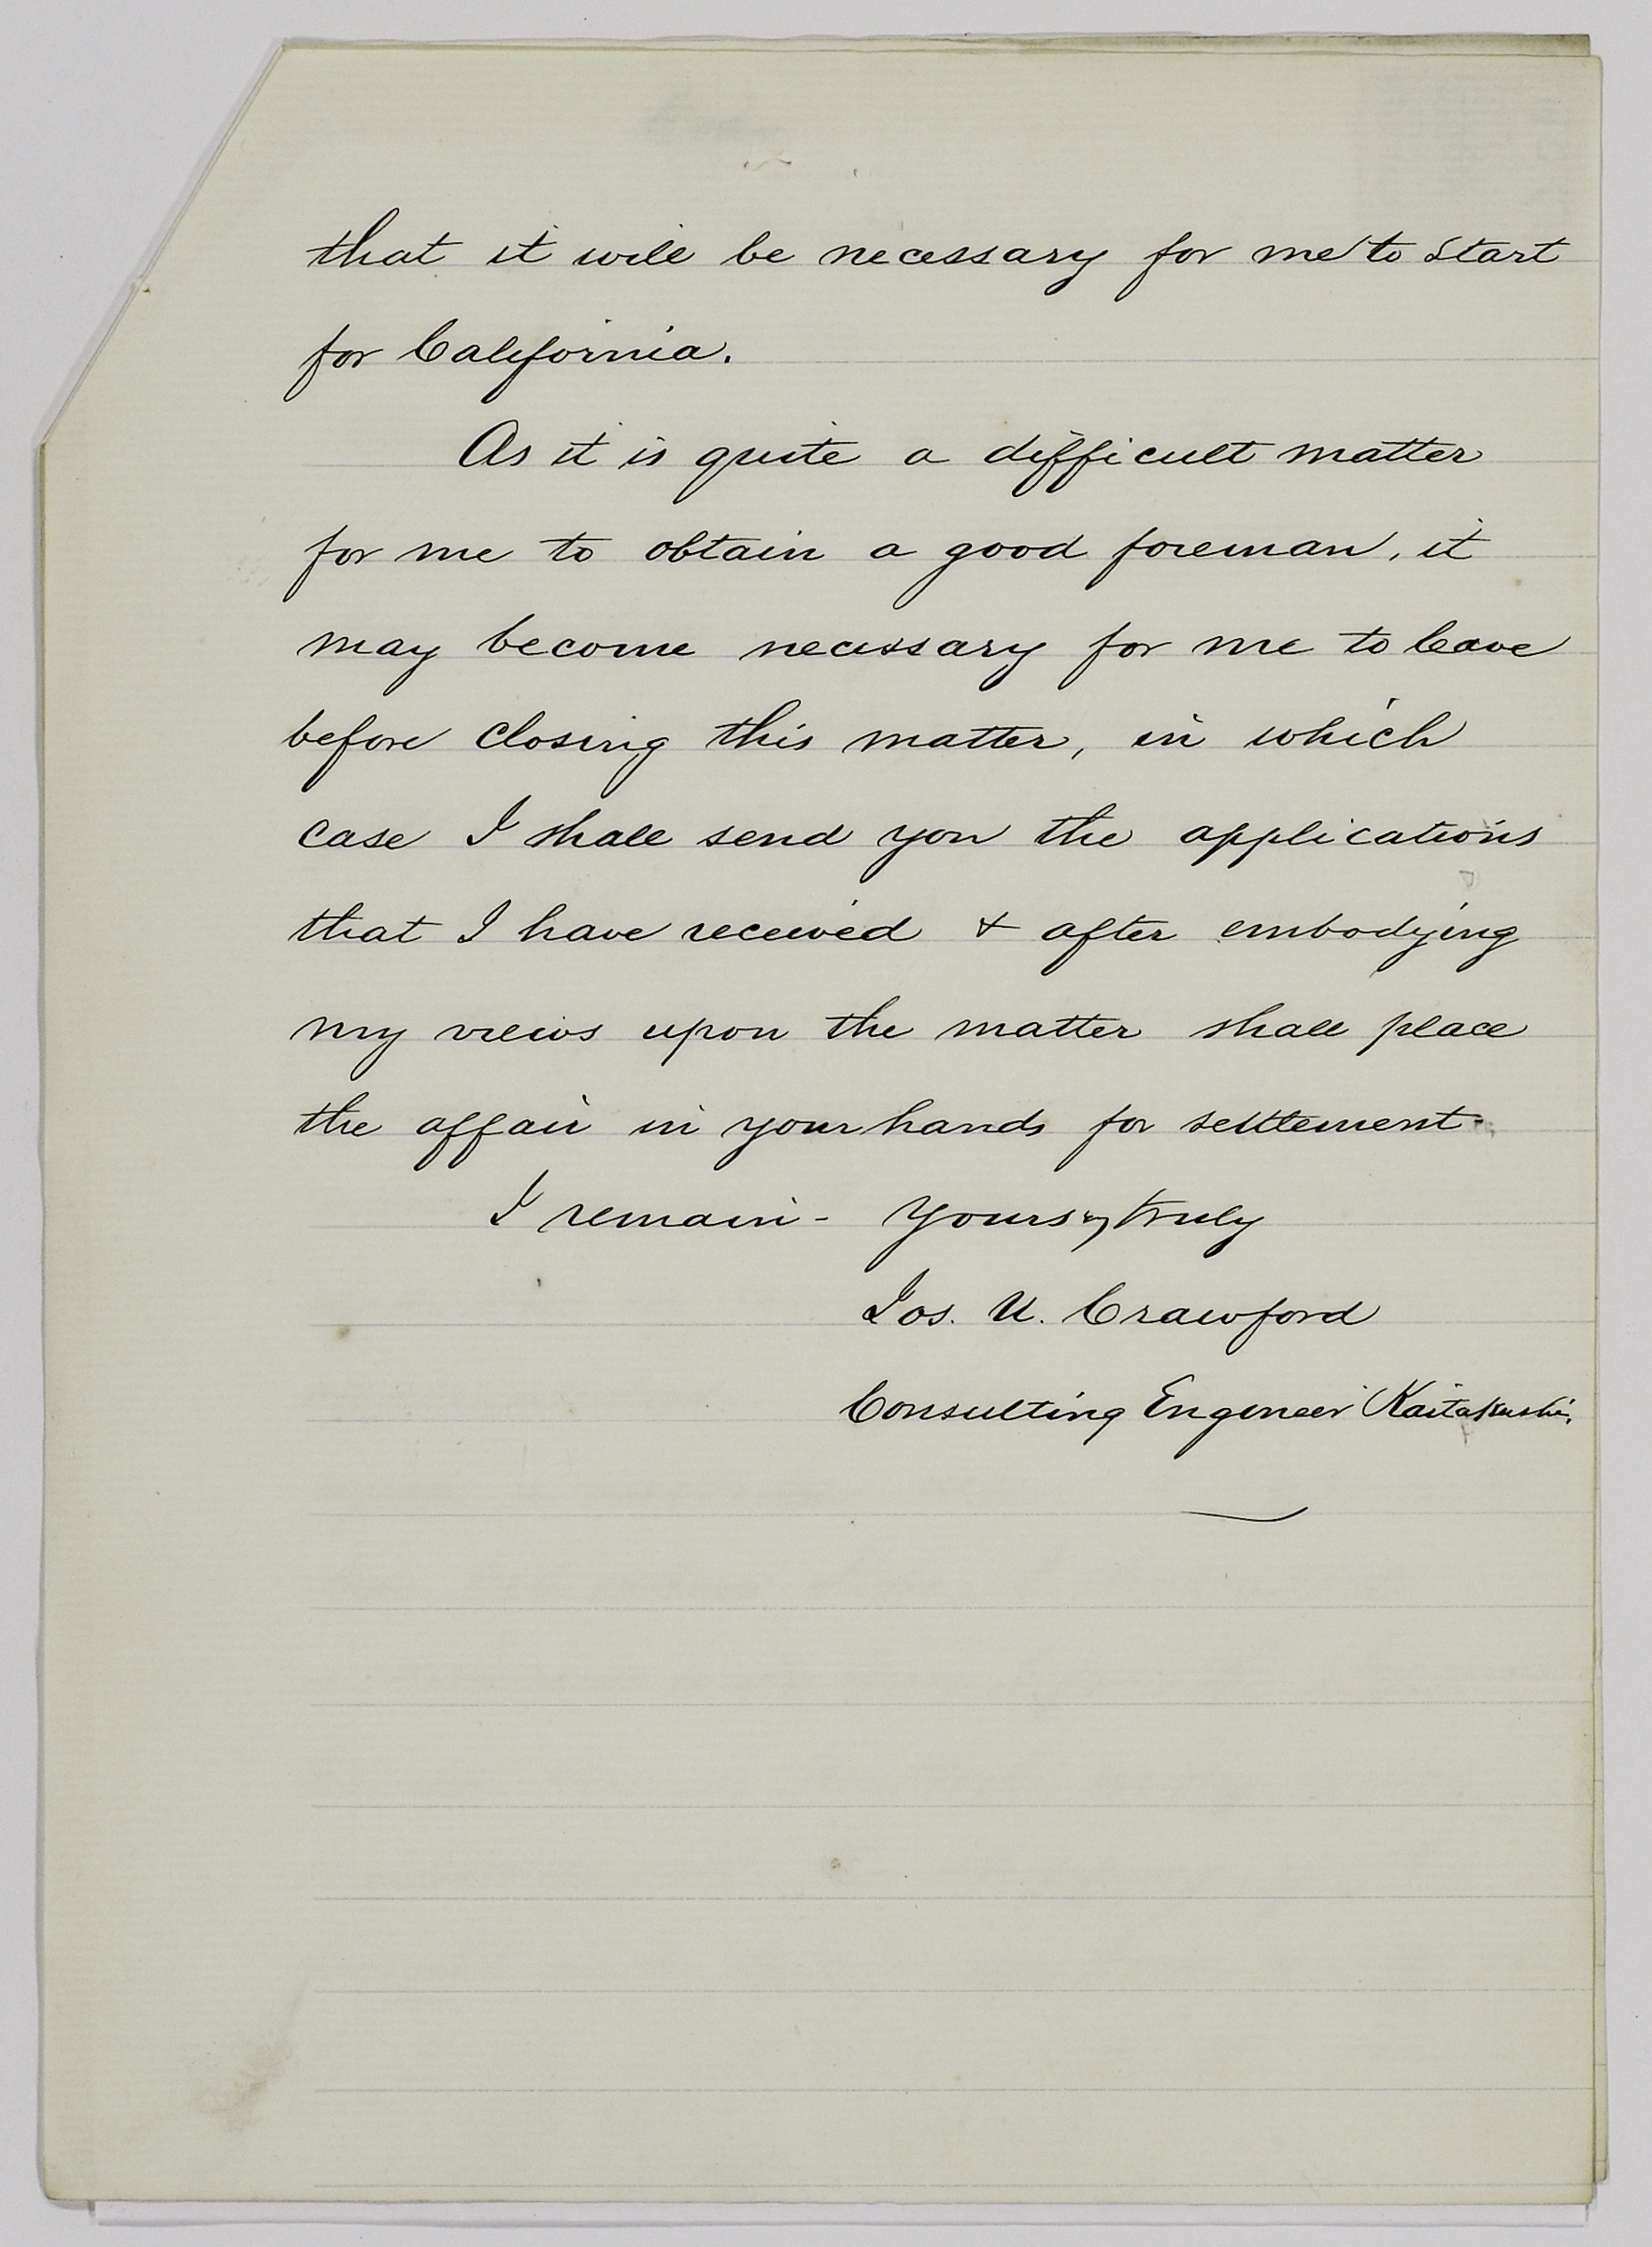 that it will be necessary for me to start
for California.
As it is quite a difficult matter
for me to obtain a good foreman, it
may become necessary for me to leave
before closing this matter, in which
case I shall send you the applications
that I have received & after embodying
my views upon the matter shall place
the affair in your hands for settlement.
I remain - Yours truly
Jos. U. Crawford
Consulting Engineer Kaitakushi.